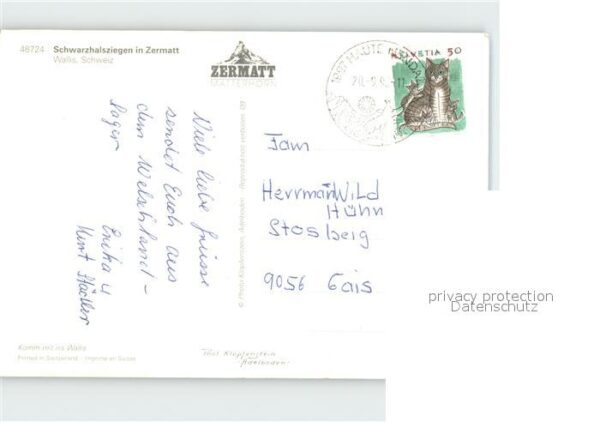 48724 Schwarzhalsziegen in Zermatt
Wallis, Schweiz
ZERMATT
HELVETIA 50
1997 HAUTE-NENDAZ
Viele liebe Grüsse
sendet Euch aus
dem Welschland-
lager
Erika u
Kurt
© Photo Klopfenstein, Adelboden - Reproduktion verboten 89
Fam
Herrman Wild
Hühn
Stosberg
9056 Gais
Komm mit ins Wallis
Printed in Switzerland - Imprimé en Suisse
Thal Klopfenstein
Adelboden
privacy protection
Datenschutz